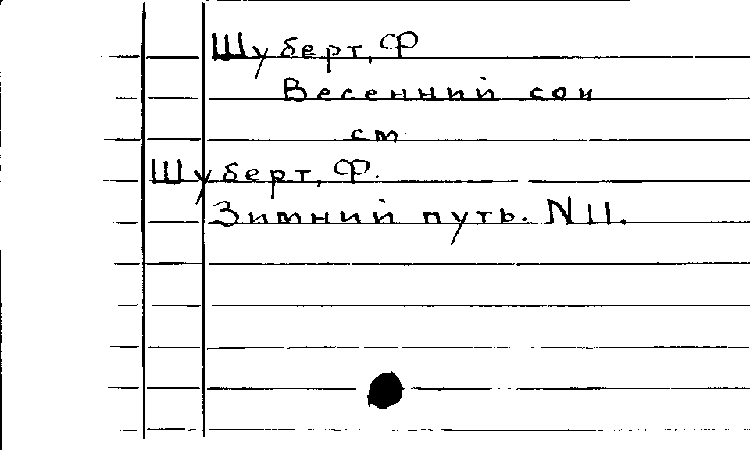 Шуберт, Ф
Весенний сон
см
Шуберт, Ф.
Зимний путь. N 11.